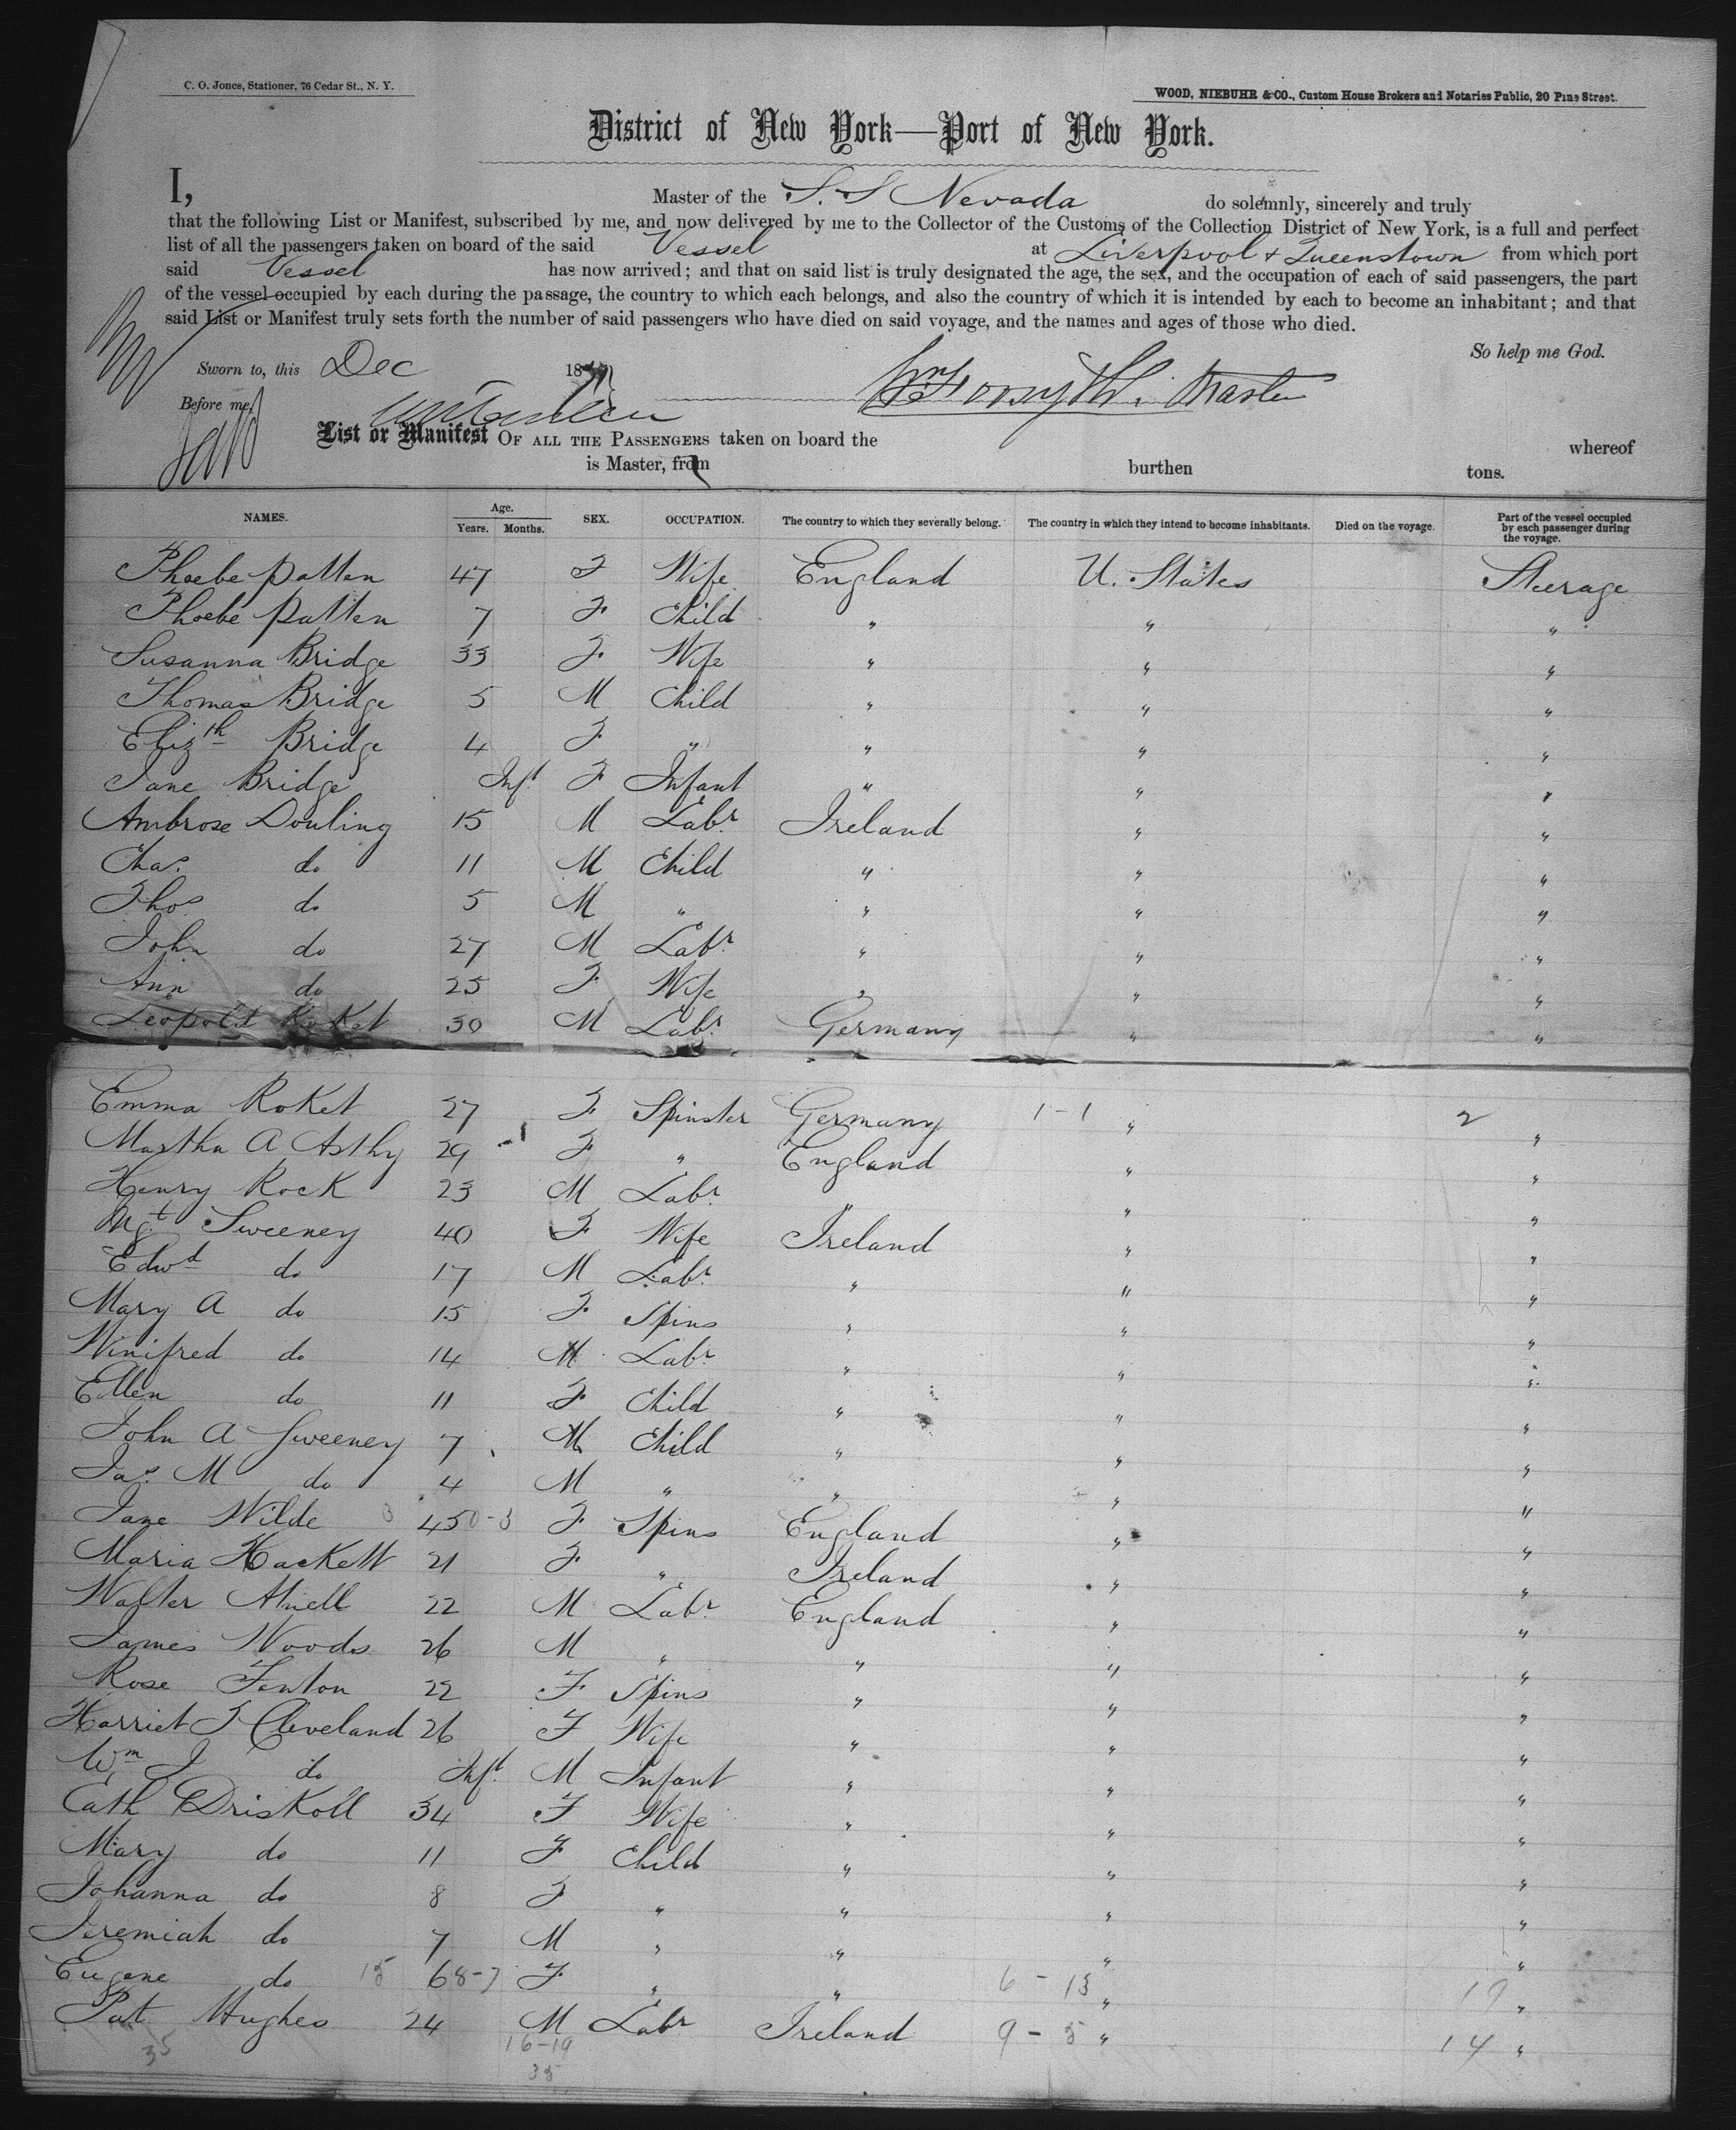 C. O. Jones, Stationer, 76 Cedar St., N. Y.
WOOD, NIEBUHR & CO., Custom House Brokers and Notaries Public, 20 Pine Street.
District of New York—Port of New York.
I, Master of the S. S Nevada do solemnly, sincerely and truly
that the following List or Manifest, subscribed by me, and now delivered by me to the Collector of the Customs of the Collection District of New York, is a full and perfect
list of all the passengers taken on board of the said Vessel at Liverpool + Queenstown from which port
said Vessel has now arrived; and that on said list is truly designated the age, the sex, and the occupation of each of said passengers, the part
of the vessel occupied by each during the passage, the country to which each belongs, and also the country of which it is intended by each to become an inhabitant; and that
said List or Manifest truly sets forth the number of said passengers who have died on said voyage, and the names and ages of those who died.
So help me God.
Sworn to, this Dec 187
Wm Forsyth. Master
Before me,
List or Manifest OF ALL THE PASSENGERS taken on board the whereof
is Master, from burthen tons.
NAMES. Age. Years. Months. SEX. OCCUPATION. The country to which they severally belong. The country in which they intend to become inhabitants. Died on the voyage. Part of the vessel occupied by each passenger during the voyage.
Phoebe Patten 47 F Wife England U. States Steerage
Phoebe Patten 7 F Child " " "
Susanna Bridge 33 F Wife " " "
Thomas Bridge 5 M Child " " "
Elizth Bridge 4 F " " " "
Jane Bridge Inft F Infant " " "
Ambrose Douling 15 M Labr Ireland " "
Chas. do 11 M Child " " "
Thos do 5 M " " " "
John do 27 M Labr " " "
Ann do 25 F Wife " " "
Leopold Roket 30 M Labr Germany " "
Emma Roket 27 F Spinster Germany 1-1 " 2 "
Martha A Asthy 29 -1 F " England " "
Henry Rock 23 M Labr " " "
Mgt Sweeney 40 F Wife Ireland " "
Edwd do 17 M Labr " " "
Mary A do 15 F Spins " " "
Winifred do 14 M Labr " " "
Ellen do 11 F Child " " "
John A Sweeney 7 M Child " " "
Jas. M do 4 M " " " "
Jane Wilde 45 F Spins England " "
Maria Hackett 21 F " Ireland " "
Walter Atnell 22 M Labr England " "
James Woods 26 M " " " "
Rose Fenton 22 F Spins " " "
Harriet J Cleveland 26 F Wife " " "
Wm J do Inft M Infant " " "
Cath Driskoll 34 F Wife " " "
Mary do 11 F Child " " "
Johanna do 8 F " " " "
Jeremiah do 7 M " " " "
Eugene do 6 F " " 6 - 13 " "
Pat Hughes 24 M Labr Ireland 9 - 5 " 14 "
35 16-19
35